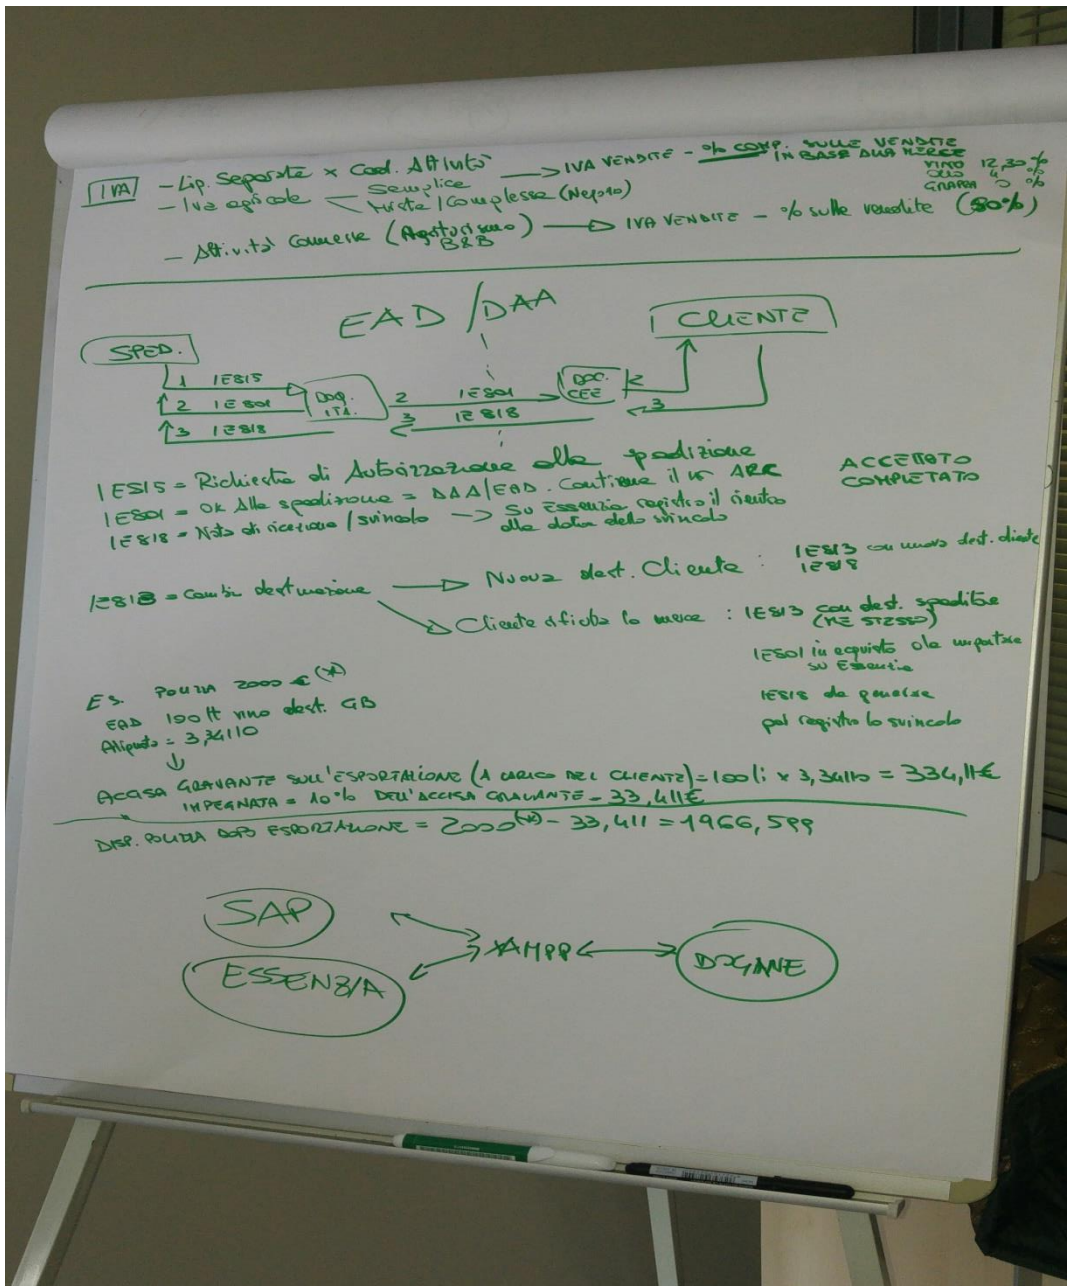 IVA - Liq. Separate x Cod. Attività
- Iva agricola Semplice → IVA VENDITE - % COMP. SULLE VENDITE
IN BASE ALLA MERCE
Mista / Complessa
VINO 12,30 %
OLIO 4 %
GRAPPA 0 %
- Attività Connesse (Agriturismo) → IVA VENDITE - % sulle vendite (50%)
B&B
EAD / DAA
SPED.
CLIENTE
1 IE815
2 IE801
3 IE818
DOG. ITA.
2 IE801
3 IE818
DOG. CEE
2
3
IE815 = Richiesta di Autorizzazione alla spedizione
IE801 = OK Alla spedizione = DAA/EAD. Contiene il n° ARC
IE818 = Nota di ricezione / svincolo → Su Essenzia registro il rientro
alla data dello svincolo
ACCETTATO
COMPLETATO
IE813 = Cambio destinazione → Nuova dest. Cliente : IE813 con nuova dest. cliente
IE818
→ Cliente rifiuta la merce : IE813 con dest. speditore
(ME STESSO)
IE801 in acquisto da importare
su Essenzia
IE818 da generare
poi registro lo svincolo
ES. POLIZZA 2000 € (*)
EAD 100 lt vino dest. GB
Aliquota = 3,34110
↓
ACCISA GRAVANTE SULL'ESPORTAZIONE (A CARICO DEL CLIENTE) = 100 li x 3,34110 = 334,11€
IMPEGNATA = 10% DELL'ACCISA GRAVANTE - 33,411€
DISP. POLIZZA DOPO ESPORTAZIONE = 2000(*) - 33,411 = 1966,599
SAP
XAMPP
DOGANE
ESSENZIA